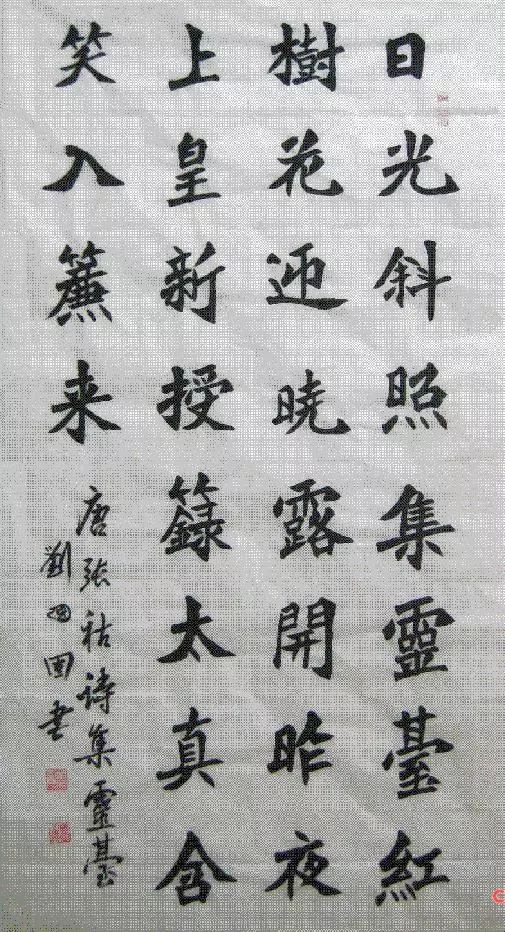 日光斜照集靈臺紅
樹花迎曉露開昨夜
上皇新授籙太真含
笑入簾来
唐張祜詩集靈臺
劉
書